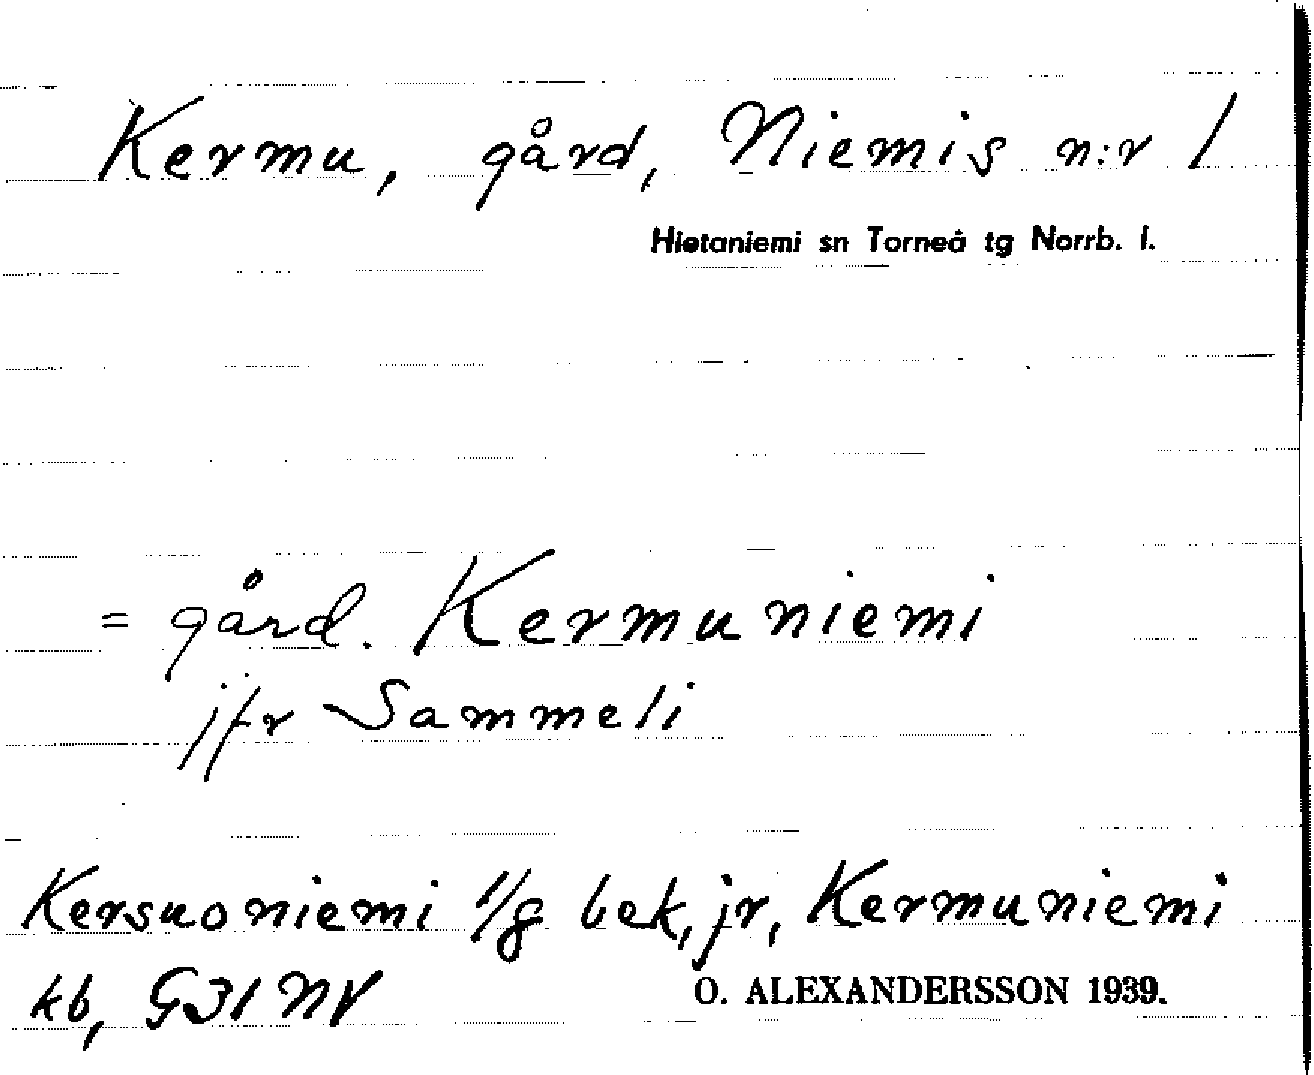 Kermu, gård, Niemis n:r 1
Hietaniemi sn Torneå tg Norrb. l.
= gård. Kermuniemi
jfr Sammeli
Kersuoniemi 1/8 bek, jr, Kermuniemi
kb, G31 NV
O. ALEXANDERSSON 1939.